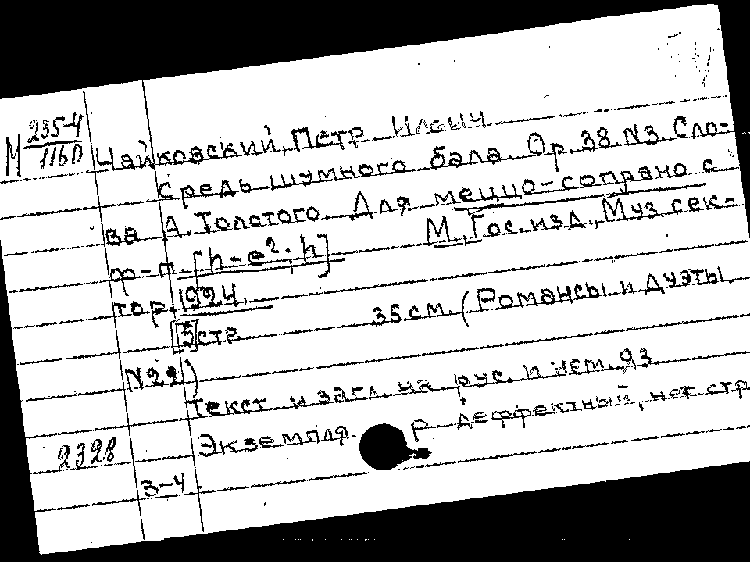 М 235-4
116D
Чайковский, Петр Ильич
Средь шумного бала. Op. 38. N3. Сло-
ва А. Толстого. Для меццо-сопрано с
ф-п. [h-e²; h] М., Гос. изд., Муз сек-
тор. 1924.
[5]стр 35 см. (Романсы и дуэты.
N22)
Текст и загл. на рус. и нем. яз.
Экземпля р деффектный, нет стр
2328
3-4